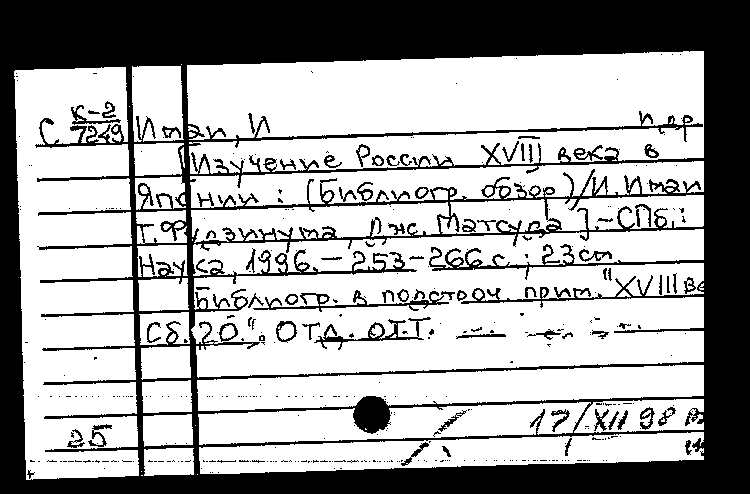 С К-2/7249 Имаи, И и др
[Изучение России XVIII века в
Японии : (Библиогр. обзор)/И. Имаи
Т. Фудзинума, Дж. Матсуда].-СПб.:
Наука, 1996.-253-266 с.; 23 см.
Библиогр. в подстроч. прим. "XVIII ве
Сб. 20.". Отд. отт.
25 17/XII 98